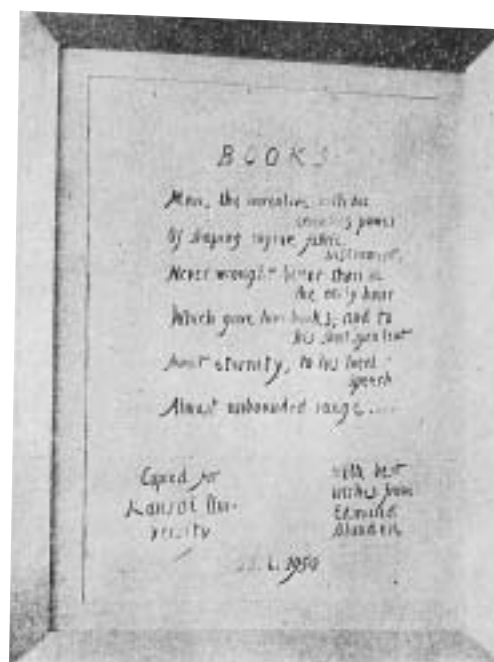 BOOKS
Man, the inventive, with his
power
Of shaping engine, fabric,
instrument,
Never wrought better than in
the only hour
Which gave him books, and to
his
Almost eternity, to his local
speech
Almost unbounded range....
Copied for
Kansai Uni-
versity
with best
wishes from
Edmund
Blunden
1950